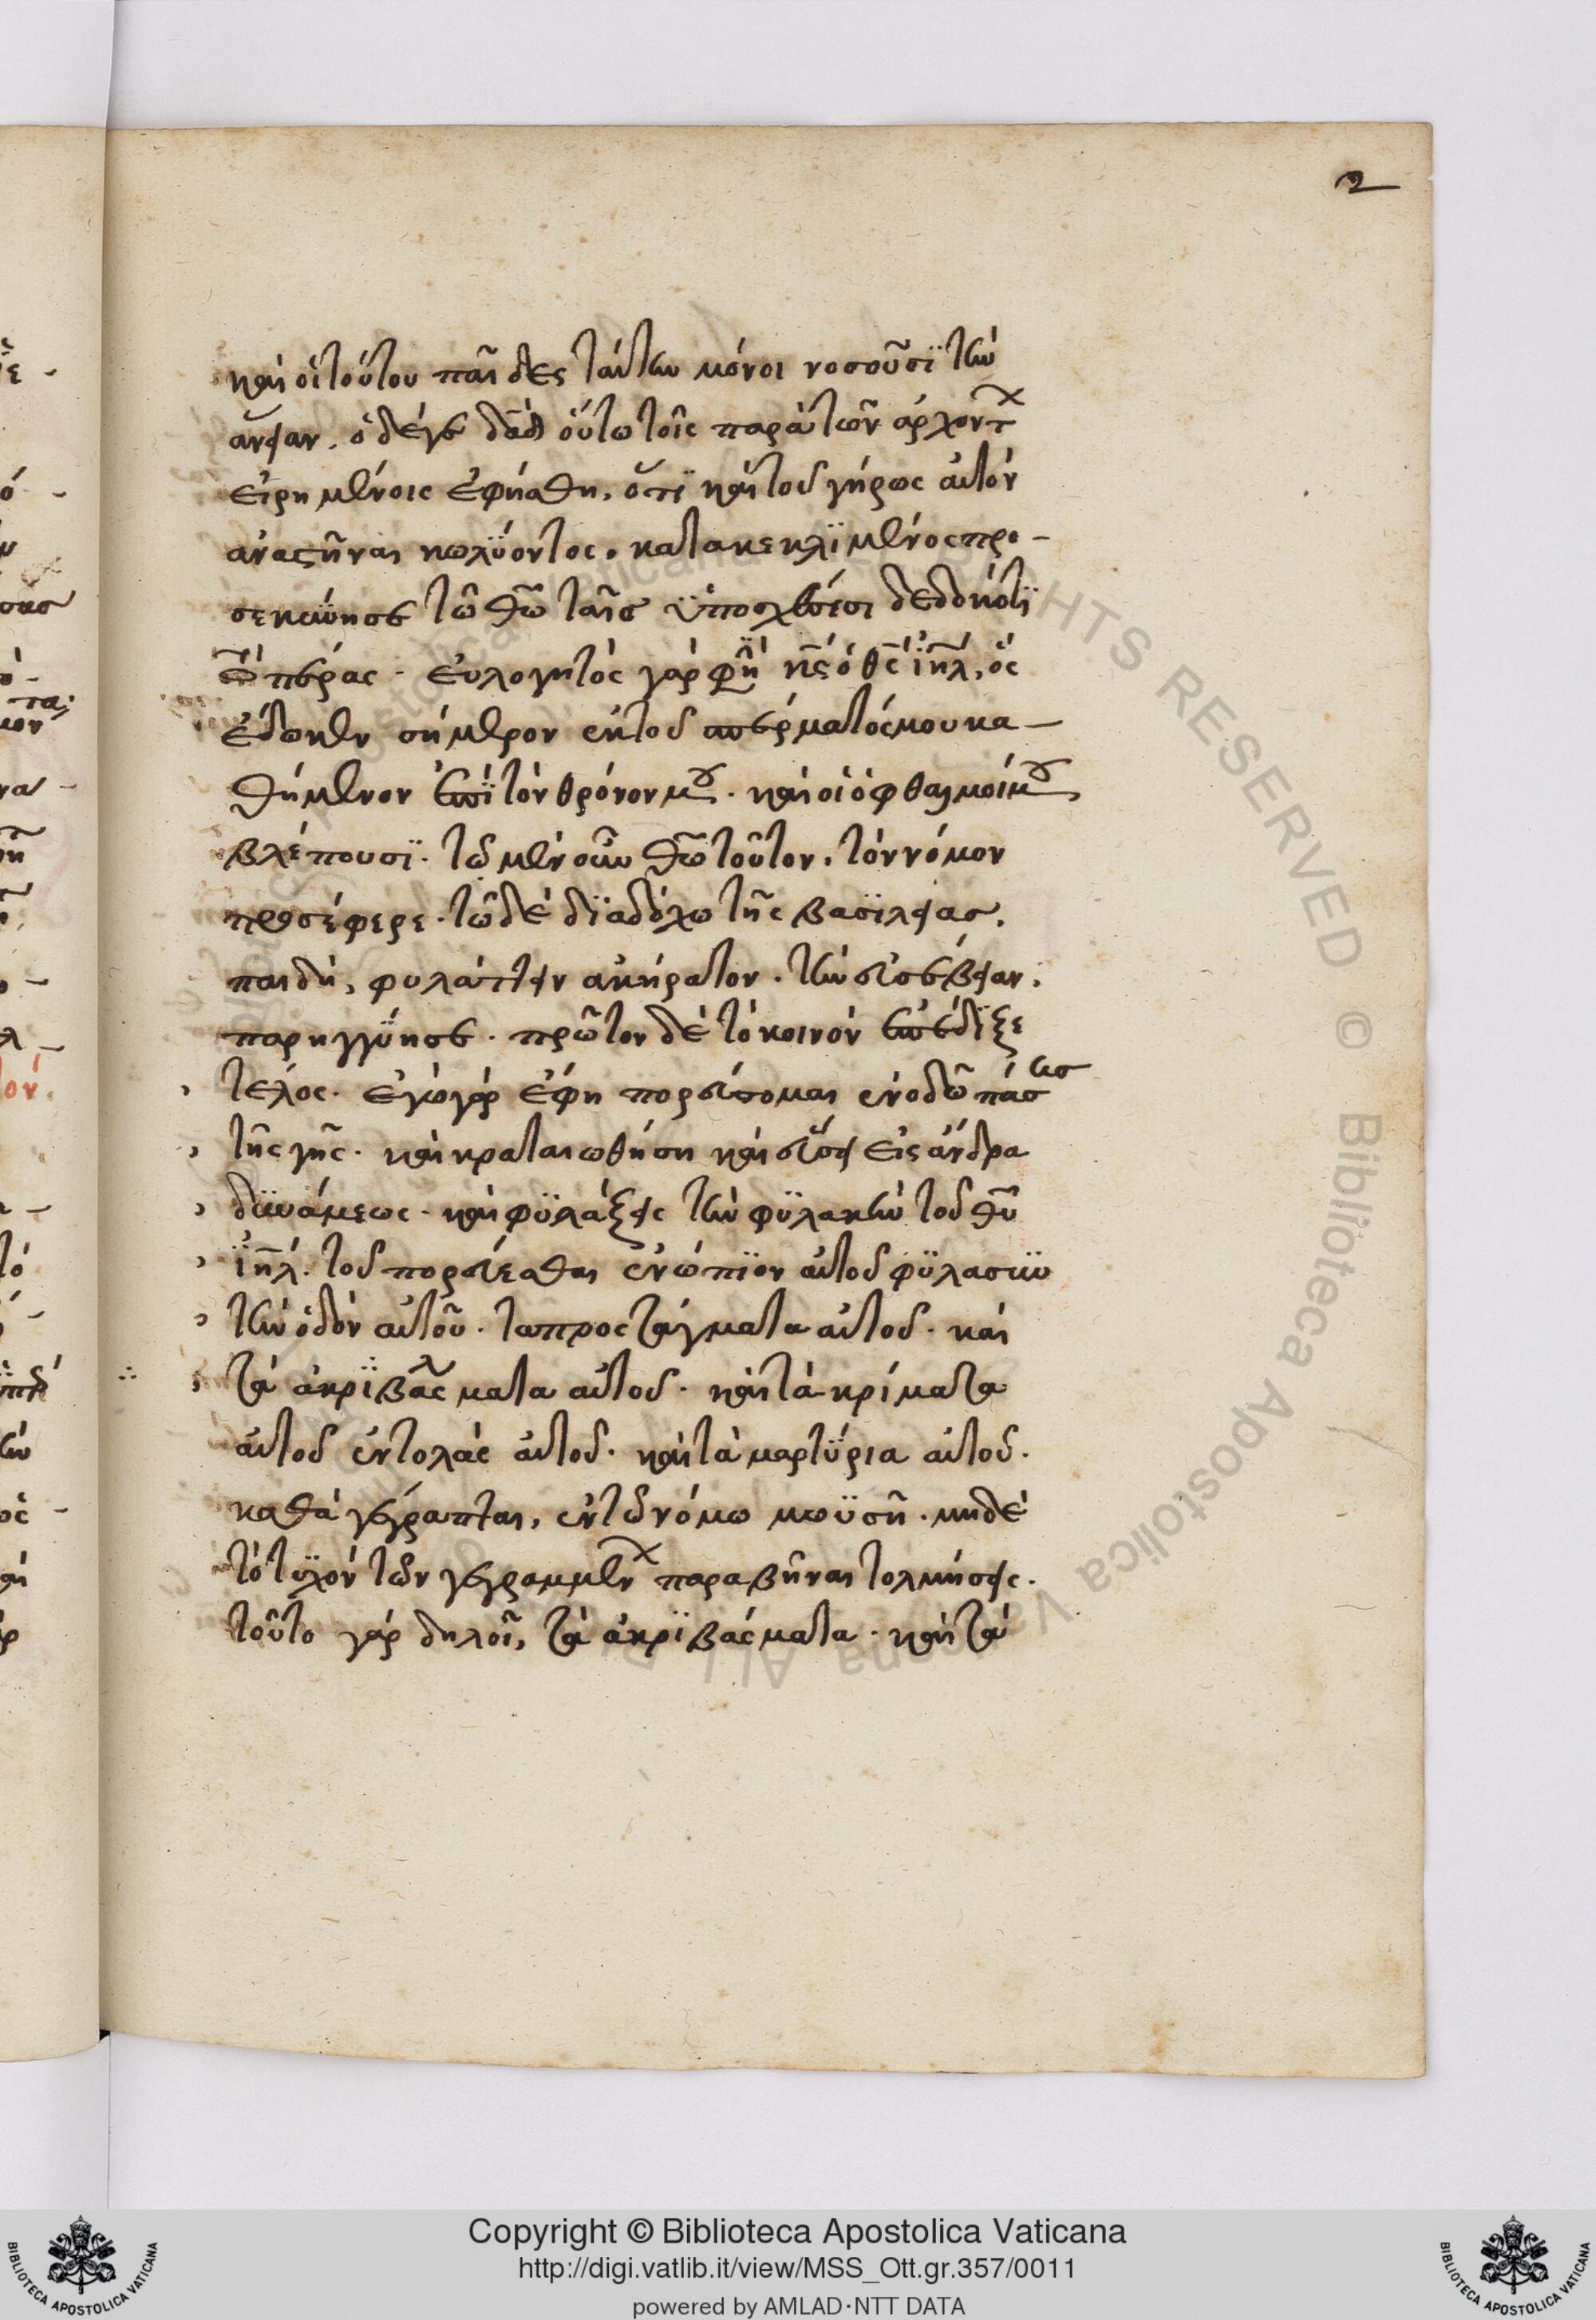 2
καὶ οἱ τούτου παῖδες ταύτην μόνοι νοσοῦσϊ τὴν
ἄνοιαν. ὁ δέγε δᾱδ οὕτω τοῖς παρὰ τῶν ἀρχοντ
εἰρημένοις ἐφήσθη, ὅτϊ καὶ τοῦ γήρως αὐτὸν
ἀναστῆναι κωλϋοντος. κατακεκλϊμένος προ-
σεκϋνησε τῶ θῶ ταῖς ϋποσχέσεσι δεδοκότϊ
πέρας. εὐλογητὸς γάρ φη κς ὁ θς ιηλ, ὃς
ἔδωκεν σήμερον ἐκ τοῦ σπέρματός μου κα-
θήμενον ἐπϊ τὸν θρόνον μου. καὶ οἱ ὀφθαλμοί μου
βλέπουσϊ. τῶ μὲν οὖν θῶ τοῦτον. τὸν νόμον
προσέφερε. τῶ δὲ δϊαδόχω τῆς βασϊλείας.
παιδὶ, φυλάττειν ἀκήρατον. τὴν εὐσέβειαν.
παρηγγϋησε. πρῶτον δὲ τὸ κοινὸν ἐπέδϊξε
τέλος. ἐγὼ γάρ ἔφη πορεύσομαι ἐν οδῶ πάσης
τῆς γῆς. καὶ κραταιωθήση καὶ ἔση εἰς ἄνδρα
δϋνάμεως. καὶ φϋλάξεις τὴν φϋλακὴν τοῦ θῦ
ιηλ. τοῦ πορεύεσθαι ἐνώπϊον αὐτοῦ φϋλάσσϋν
τὴν ὁδὸν αὐτοῦ. τα προςτάγματα αὐτοῦ. καὶ
τὰ ἀκρϊβάσματα αὐτοῦ. καὶ τὰ κρίματα
αὐτοῦ ἐντολὰς αὐτοῦ. καὶ τὰ μαρτϋρια αὐτοῦ.
καθὰ γέγραπται, ἐν τῶ νόμω μωϋσῆ. μηδὲ
τὸ τϋχὸν τῶν γεγραμμέν παραβῆναι τολμήσεις.
τοῦτο γάρ δηλοῖ, τὰ ἀκρϊβάσματα. καὶ τὰ
RIGHTS RESERVED © Biblioteca Apostolica Vaticana
Copyright © Biblioteca Apostolica Vaticana
http://digi.vatlib.it/view/MSS_Ott.gr.357/0011
powered by AMLAD·NTT DATA
BIBLIOTECA APOSTOLICA VATICANA
BIBLIOTECA APOSTOLICA VATICANA